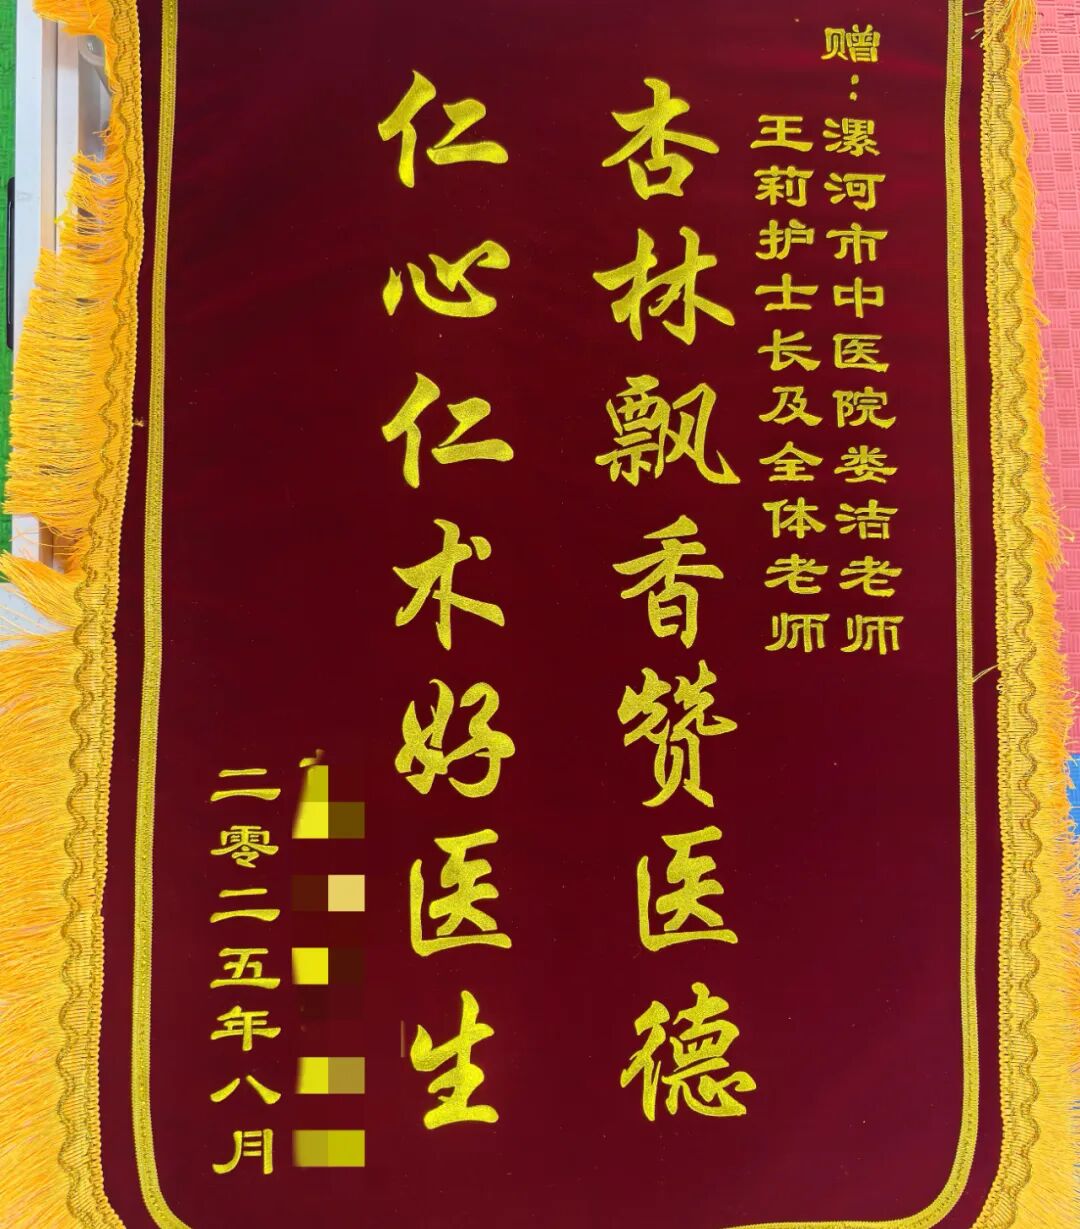 赠：漯河市中医院娄洁老师
王莉护士长及全体老师
杏林飘香赞医德
仁心仁术好医生
二零二五年八月